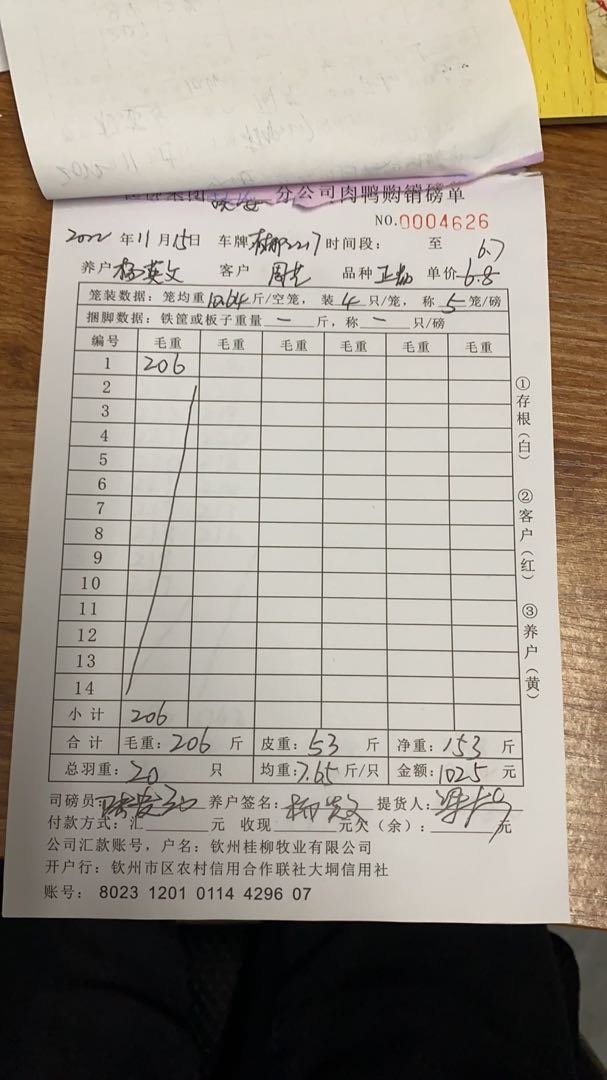 分公司肉鸭购销磅单
NO.0004626
2022 年 11 月 15 日 车牌 时间段： 至
6.7
养户 杨英文 客户 品种 正 单价 6.8
笼装数据：笼均重 10.64 斤/空笼，装 4 只/笼，称 5 笼/磅
捆脚数据：铁筐或板子重量 — 斤，称 — 只/磅
编号 毛重 毛重 毛重 毛重 毛重 毛重
1 206
2
3
4
5
6
7
8
9
10
11
12
13
14
小计 206
合计 毛重：206 斤 皮重：53 斤 净重：153 斤
总羽重：20 只 均重：7.65 斤/只 金额：1025 元
司磅员 养户签名： 提货人：
付款方式：汇 元 收现 元欠（余）： 元
公司汇款账号，户名：钦州桂柳牧业有限公司
开户行：钦州市区农村信用合作联社大垌信用社
账号：8023 1201 0114 4296 07
①存根（白）
②客户（红）
③养户（黄）